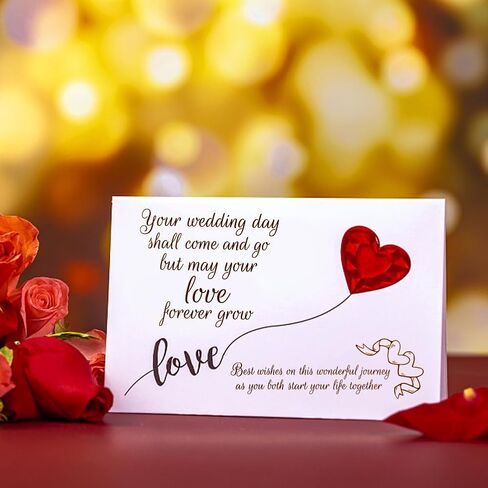 Your wedding day
shall come and go
but may your
love
forever grow
love
Best wishes on this wonderful journey
as you both start your life together